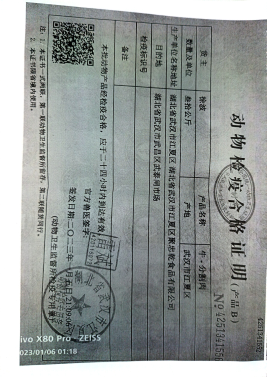 动物检疫合格证明(产品B)
№ 4251341556
货主 徐波 产品名称 牛·分割肉
数量及单位 叁拾公斤 产地 武汉市江夏区
生产单位名称地址 湖北省武汉市江夏区 湖北省武汉市江夏区聚忠乾食品有限公司
目的地 湖北省武汉市武昌区武泰闸市场
检疫标识号
备注
本批动物产品经检疫合格,应于二十四小时内到达有效。
官方兽医签字:
签发日期:二〇二三年一月五日21:09:06
(动物卫生监督所检疫专用章)
注:1. 本证书一式两联,第一联动物卫生监督所留存,第二联随货同行。
2. 本证书限省境内使用。
vivo X80 Pro ZEISS
2023/01/06 01:18